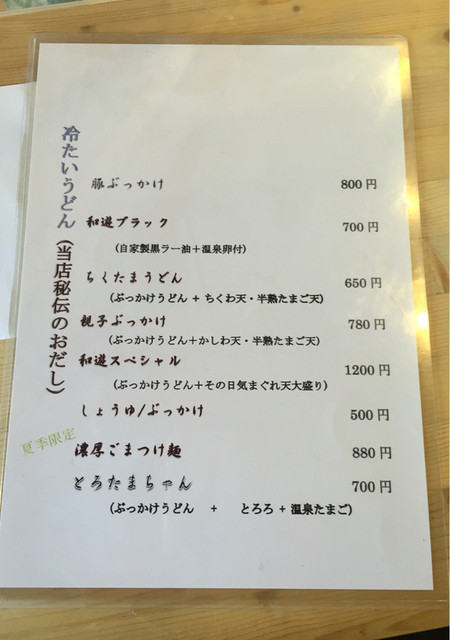 冷たいうどん(当店秘伝のおだし)
豚ぶっかけ 800円
和遊ブラック 700円
(自家製黒ラー油+温泉卵付)
ちくたまうどん 650円
(ぶっかけうどん + ちくわ天・半熟たまご天)
親子ぶっかけ 780円
(ぶっかけうどん+かしわ天・半熟たまご天)
和遊スペシャル 1200円
(ぶっかけうどん+その日気まぐれ天大盛り)
しょうゆ/ぶっかけ 500円
夏季限定
濃厚ごまつけ麺 880円
とろたまちゃん 700円
(ぶっかけうどん + とろろ + 温泉たまご)